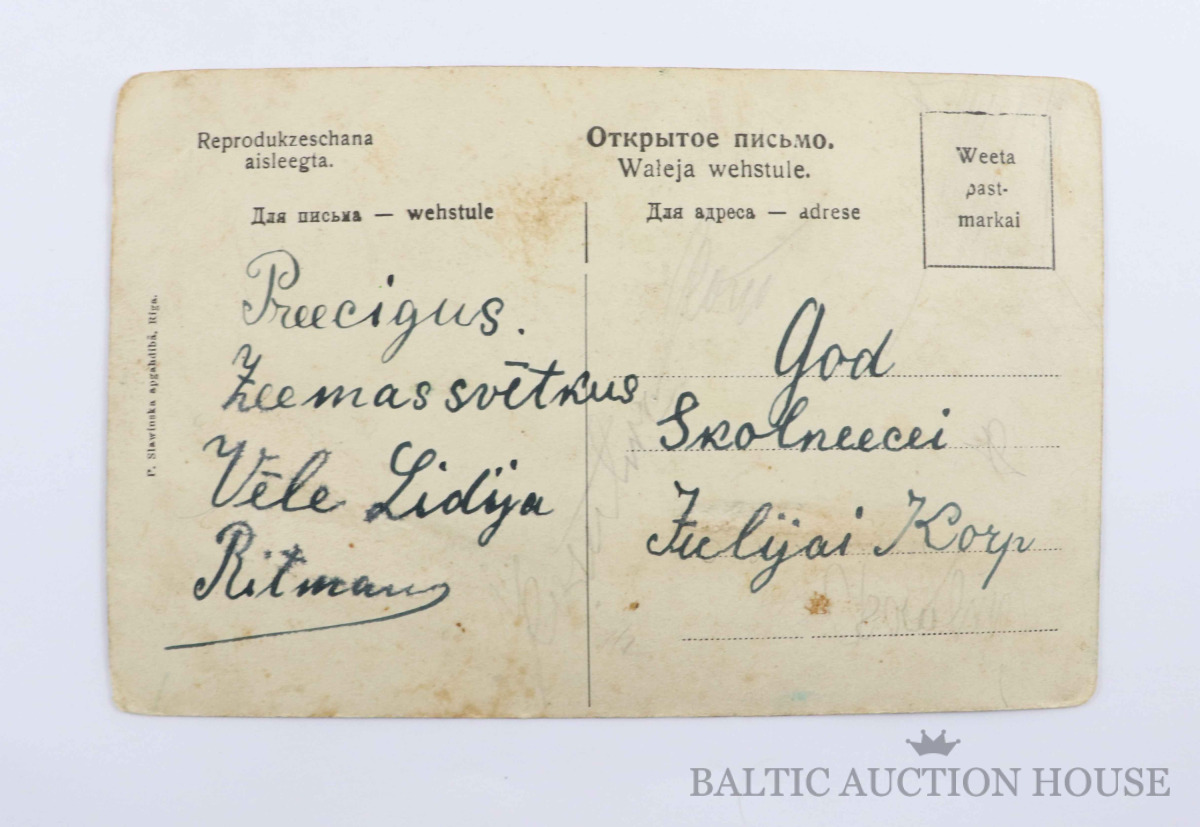 Reprodukzeschana
aisleegta.
Открытое письмо.
Waļeja wehstule.
Weeta
past-
markai
Для письма — wehstule
Для адреса — adrese
P. Slawinska apgahdibā, Riga.
Preecigus.
Zeemassvētkus
Vēle Lidija
Ritman
God
Skolneecei
Julijai Korp
BALTIC AUCTION HOUSE